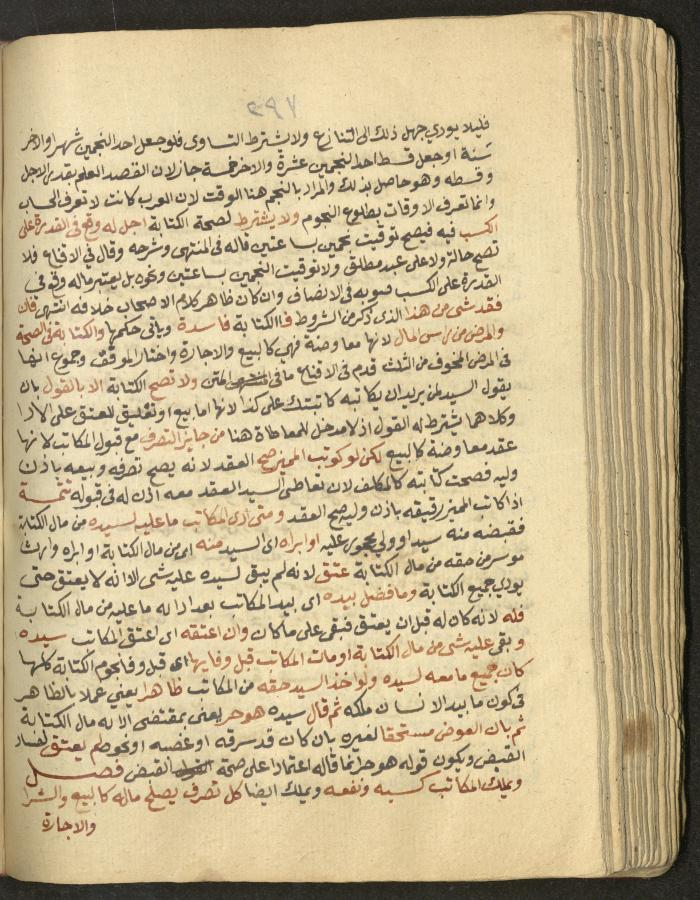 ٢٩٧
فليلا يودي جهل ذلك الى التنازع ولا يشترط التساوى فلو جعل احد النجمين شهرا والاخر
سنة او جعل قسط احد النجمين عشرة والاخر خمسة جاز لان القصد العلم بقدر الاجل
وقسطه وهو حاصل بذلك والمراد بالنجم هنا الوقت لان العرب كانت لا تعرف الحساب
وانما تعرف الاوقات بطلوع النجوم ولا يشترط لصحة الكتابة اجل له وقع في القدرة على
الكسب فيه فيصح توقيت نجمين بساعتين قاله في المنتهى وشرحه وقال في الاقناع فلا
تصح حالة ولا على عبد مطلق ولا توقيت النجمين بساعتين ونحوه بل يعتبر ماله وقع في
القدرة على الكسب صوبه في الانصاف وان كان ظاهر كلام الاصحاب خلافه انتهى فان
فقد شي من هذا الذي ذكر من الشروط فالكتابة فاسدة وياتي حكمها والكتابة في الصحة
والمرض من راس المال لانها معاوضة فهي كالبيع والاجارة واختار الموفق وجموع انها
في المرض المخوف من الثلث قدم في الاقناع ما في المتن ولا تصح الكتابة الا بالقول بان
يقول السيد لمن يريد ان يكاتبه كاتبتك على كذا لانها اما بيع او تعليق للعتق على الادا
وكلاهما يشترط له القول اذ لا مدخل للمعاطاة هنا من جايز التصرف مع قبول المكاتب لانها
عقد معاوضة كالبيع لكن لو كوتب المميز صح العقد لانه يصح تصرفه وبيعه باذن
وليه فصحت كتابته كالمكلف لان تعاطي السيد العقد معه اذن له في قبوله تتمة
اذا كاتب المميز رقيقه باذن وليه صح العقد ومتى ادى المكاتب ما عليه لسيده من مال الكتابة
فقبضه منه سيد او ولي محجور عليه او ابراه اى السيد منه اى من مال الكتابة او ابراه وارث
موسر من حقه من مال الكتابة عتق لانه لم يبق لسيده عليه شى الا انه لا يعتق حتى
يودي جميع الكتابة وما فضل بيده اى بيد المكاتب بعد ادايه ما عليه من مال الكتابة
فله لانه كان له قبل ان يعتق فبقي على ما كان وان اعتقه اى اعتق المكاتب سيده
وبقي عليه شى من مال الكتابة او مات المكاتب قبل وفايها اى قبل وفا نجوم الكتابة كلها
كان جميع ما معه لسيده ولو اخذ السيد حقه من المكاتب ظاهرا يعني عملا بالظاهر
في كون ما بيد الانسان ملكه ثم قال سيده هو حر يعني بمقتضى الادا له مال الكتابة
ثم بان العوض مستحقا لغيره بان كان قد سرقه او غصبه او نحوه لم يعتق لفساد
القبض ويكون قوله هو حر انما قاله اعتمادا على صحة القبض فصل
ويملك المكاتب كسبه ونفعه ويملك ايضا كل تصرف يصلح ماله كالبيع والشرا
والاجارة